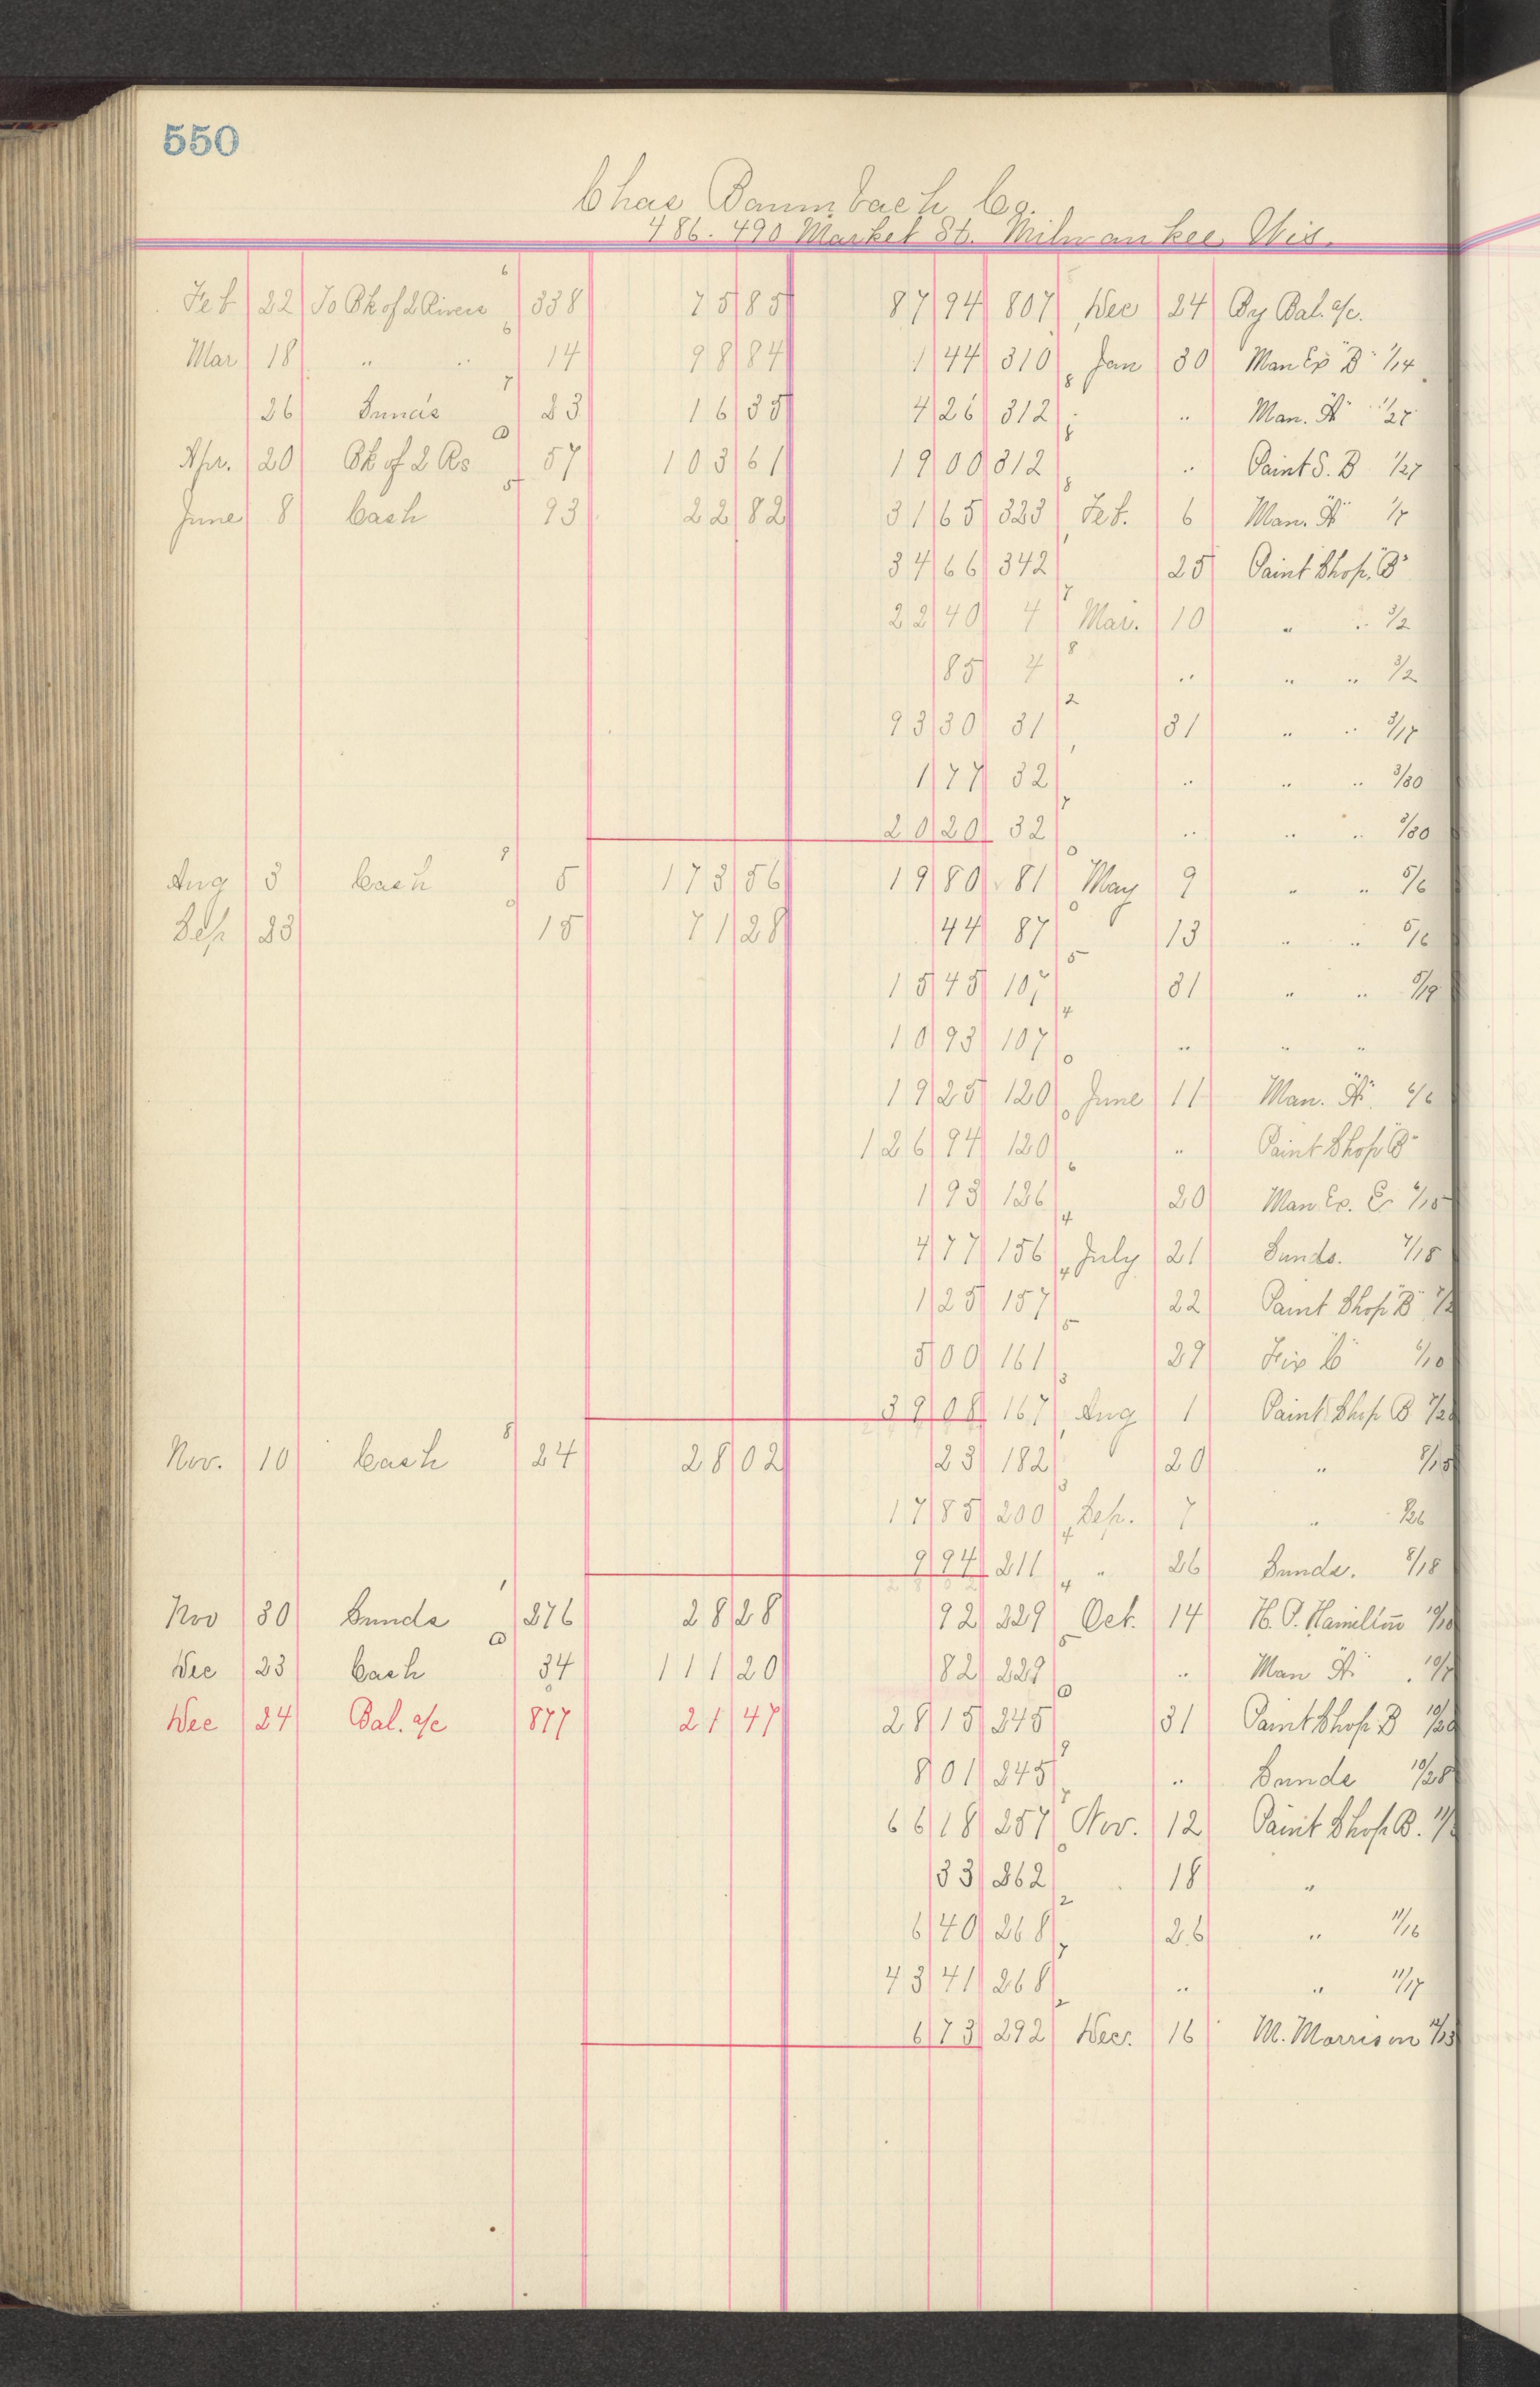 550
Chas Baumbach Co.
486-490 Market St. Milwaukee, Wis.
Feb 22 To Bk of 2 Rivers 6 338 75 85 87 94 807 Dec 24 By Bal. a/c.
Mar 18 " " 6 14 98 84 1 44 310 Jan 30 Man Ex "B" 1/14
26 Sund's 7 23 16 35 4 26 312 " Man. "A" 1/27
Apr. 20 Bk of 2 Rs 57 103 61 19 00 312 " Paint S. B 1/27
June 8 Cash 5 93 22 82 31 65 323 Feb. 6 Man. "A" 1/7
34 66 342 25 Paint Shop "B"
22 40 4 7 Mar. 10 " " 3/2
85 4 8 " " " 3/2
93 30 31 2 31 " " 3/17
1 77 32 " " " 3/30
20 20 32 7 " " " 3/30
Aug 3 Cash 9 5 173 56 19 80 81 May 9 " " 5/6
Sep 23 0 15 71 28 44 87 13 " " 5/6
15 45 107 5 31 " " 5/19
10 93 107 4 " " "
19 25 120 0 June 11 Man. "A" 6/6
126 94 120 0 " Paint Shop "B"
1 93 126 6 20 Man. Ex. C 6/15
4 77 156 4 July 21 Sunds. 7/15
1 25 157 4 22 Paint Shop "B"
5 00 161 5 29 Fix "C" 6/10
39 08 167 3 Aug 1 Paint Shop B
Nov. 10 Cash 8 24 28 02 23 182 20 " 8/15
17 85 200 3 Sep. 7 " 8/26
9 94 211 4 " 26 Sunds. 8/18
Nov 30 Sunds 1 276 28 28 92 229 4 Oct. 14 H. P. Hamilton 10/10
Dec 23 Cash 34 111 20 82 229 5 " Man "A" 10/7
Dec 24 Bal. a/c 877 21 47 28 15 245 31 Paint Shop B
8 01 245 9 " Sunds 10/28
66 18 257 7 Nov. 12 Paint Shop B.
33 262 0 18 "
6 40 268 2 26 " 11/16
43 41 268 7 " " 11/17
6 73 292 2 Dec. 16 M. Morrison 12/13